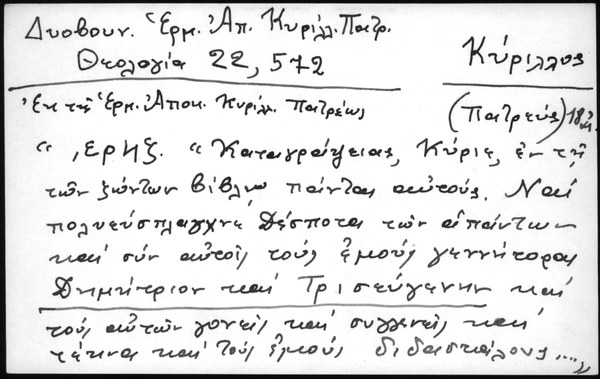 Δυοβουν. Ἑρμ. Ἀπ. Κυρίλλ. Πατρ.
Θεολογία 22, 572
Κύριλλος
Ἐκ τῆς Ἑρμ. Ἀποκ. Κυρίλλ. Πατρέως
(Πατρεύς)
"͵ερηξ. "Καταγράψειας, Κύριε, ἐν τῇ
τῶν ζώντων βίβλῳ πάντας αὐτούς. Ναί
πολυεύσπλαγχνε Δέσποτα τῶν ἁπάντων
καί σύν αὐτοῖς τούς ἐμούς γεννήτορας
Δημήτριον καί Τρισεύγενην καί
τούς αὐτῶν γονεῖς καί συγγενεῖς καί
τέκνα καί τούς ἐμούς διδασκάλους....."